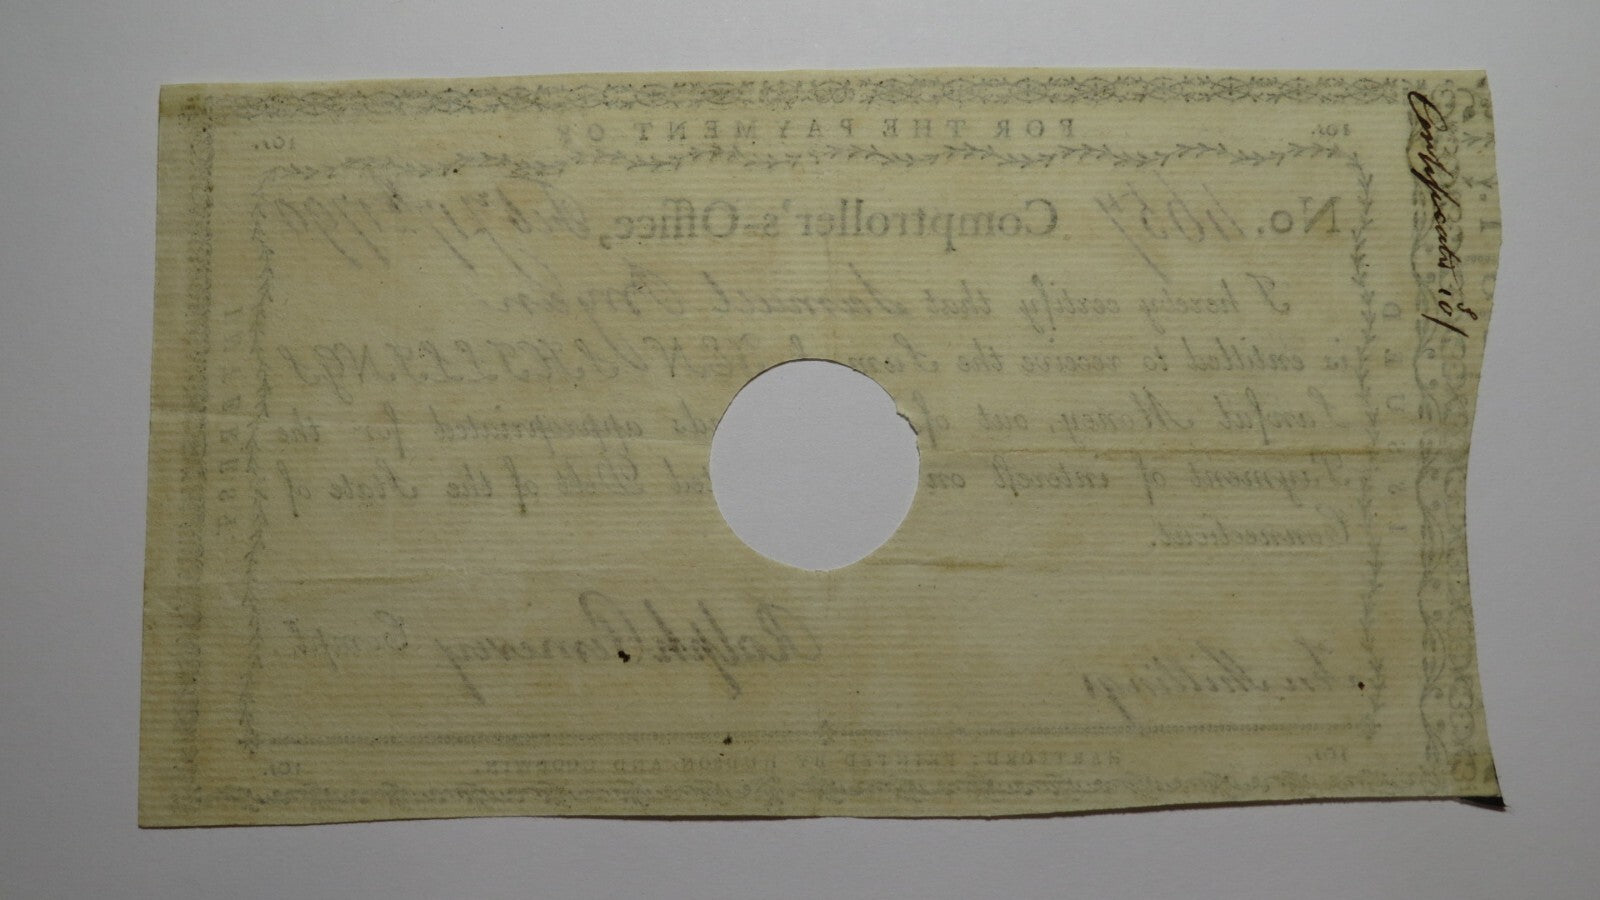 FOR THE PAYMENT OF
10s. 10s.
No. Comptroller's-Office, 1790
I hereby certify that Samuel
is entitled to receive the Sum TEN SHILLINGS
Lawful Money, out of ds appropriated for the
Payment of interest on ed Debt of the State of
Connecticut.
Ralph Pomeroy Compt.
Ten Shillings
10s. 10s.
HARTFORD: PRINTED BY HUDSON AND GOODWIN.
INTEREST.
Certificate 10/